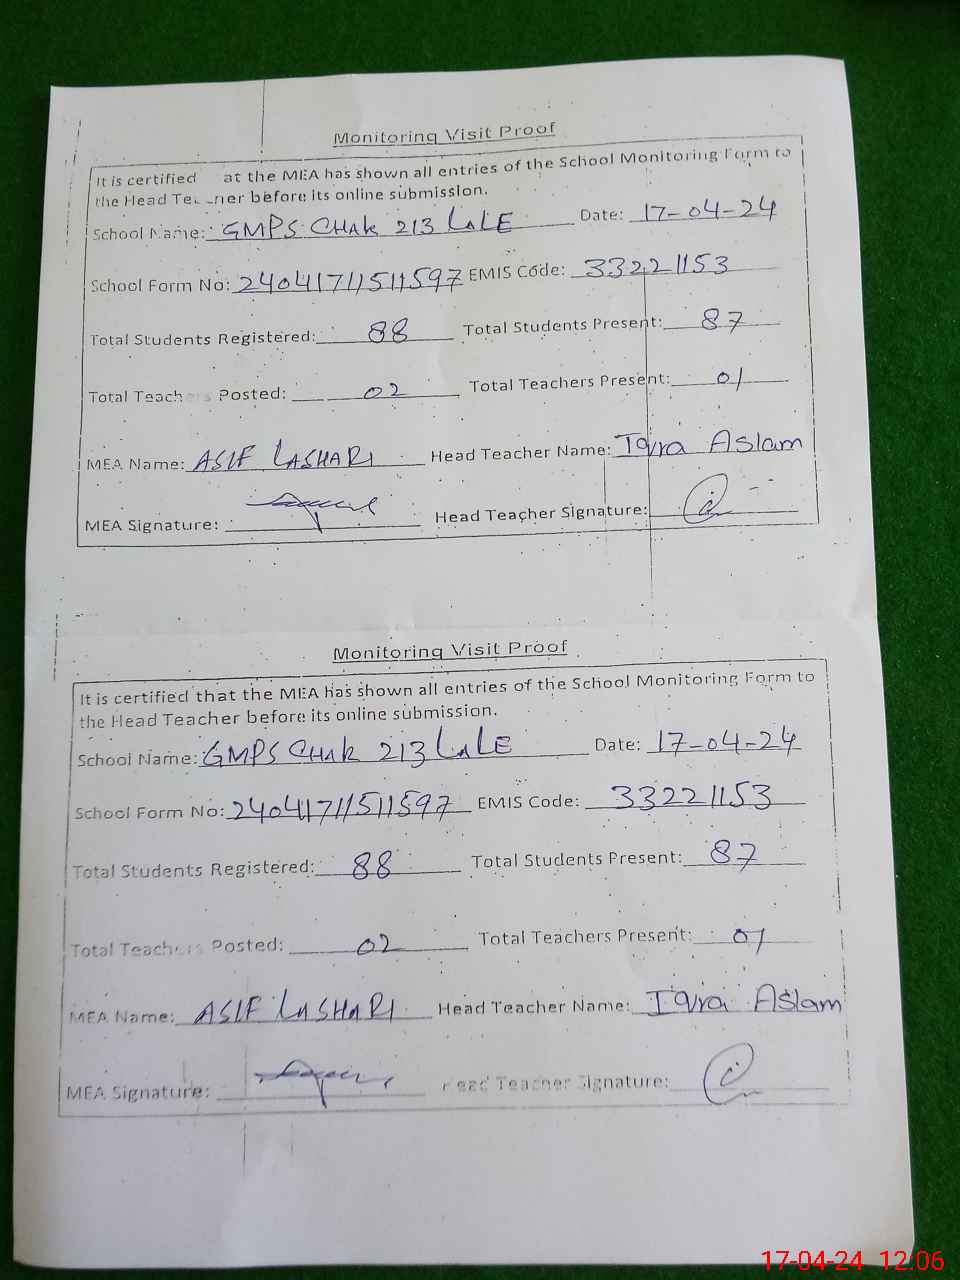 Monitoring Visit Proof
It is certified at the MEA has shown all entries of the School Monitoring Form to
the Head Teacher before its online submission.
School Name: GMPS CHAK 213 LALE Date: 17-04-24
School Form No: 24041711511597 EMIS Code: 33221153
Total Students Registered: 88 Total Students Present: 87
Total Teachers Posted: 02 Total Teachers Present: 01
MEA Name: ASIF LASHARI Head Teacher Name: Iqra Aslam
MEA Signature: Head Teacher Signature:
Monitoring Visit Proof
It is certified that the MEA has shown all entries of the School Monitoring Form to
the Head Teacher before its online submission.
School Name: GMPS CHAK 213 LALE Date: 17-04-24
School Form No: 24041711511597 EMIS Code: 33221153
Total Students Registered: 88 Total Students Present: 87
Total Teachers Posted: 02 Total Teachers Present: 01
MEA Name: ASIF LASHARI Head Teacher Name: Iqra Aslam
MEA Signature: Head Teacher Signature:
17-04-24 12:06